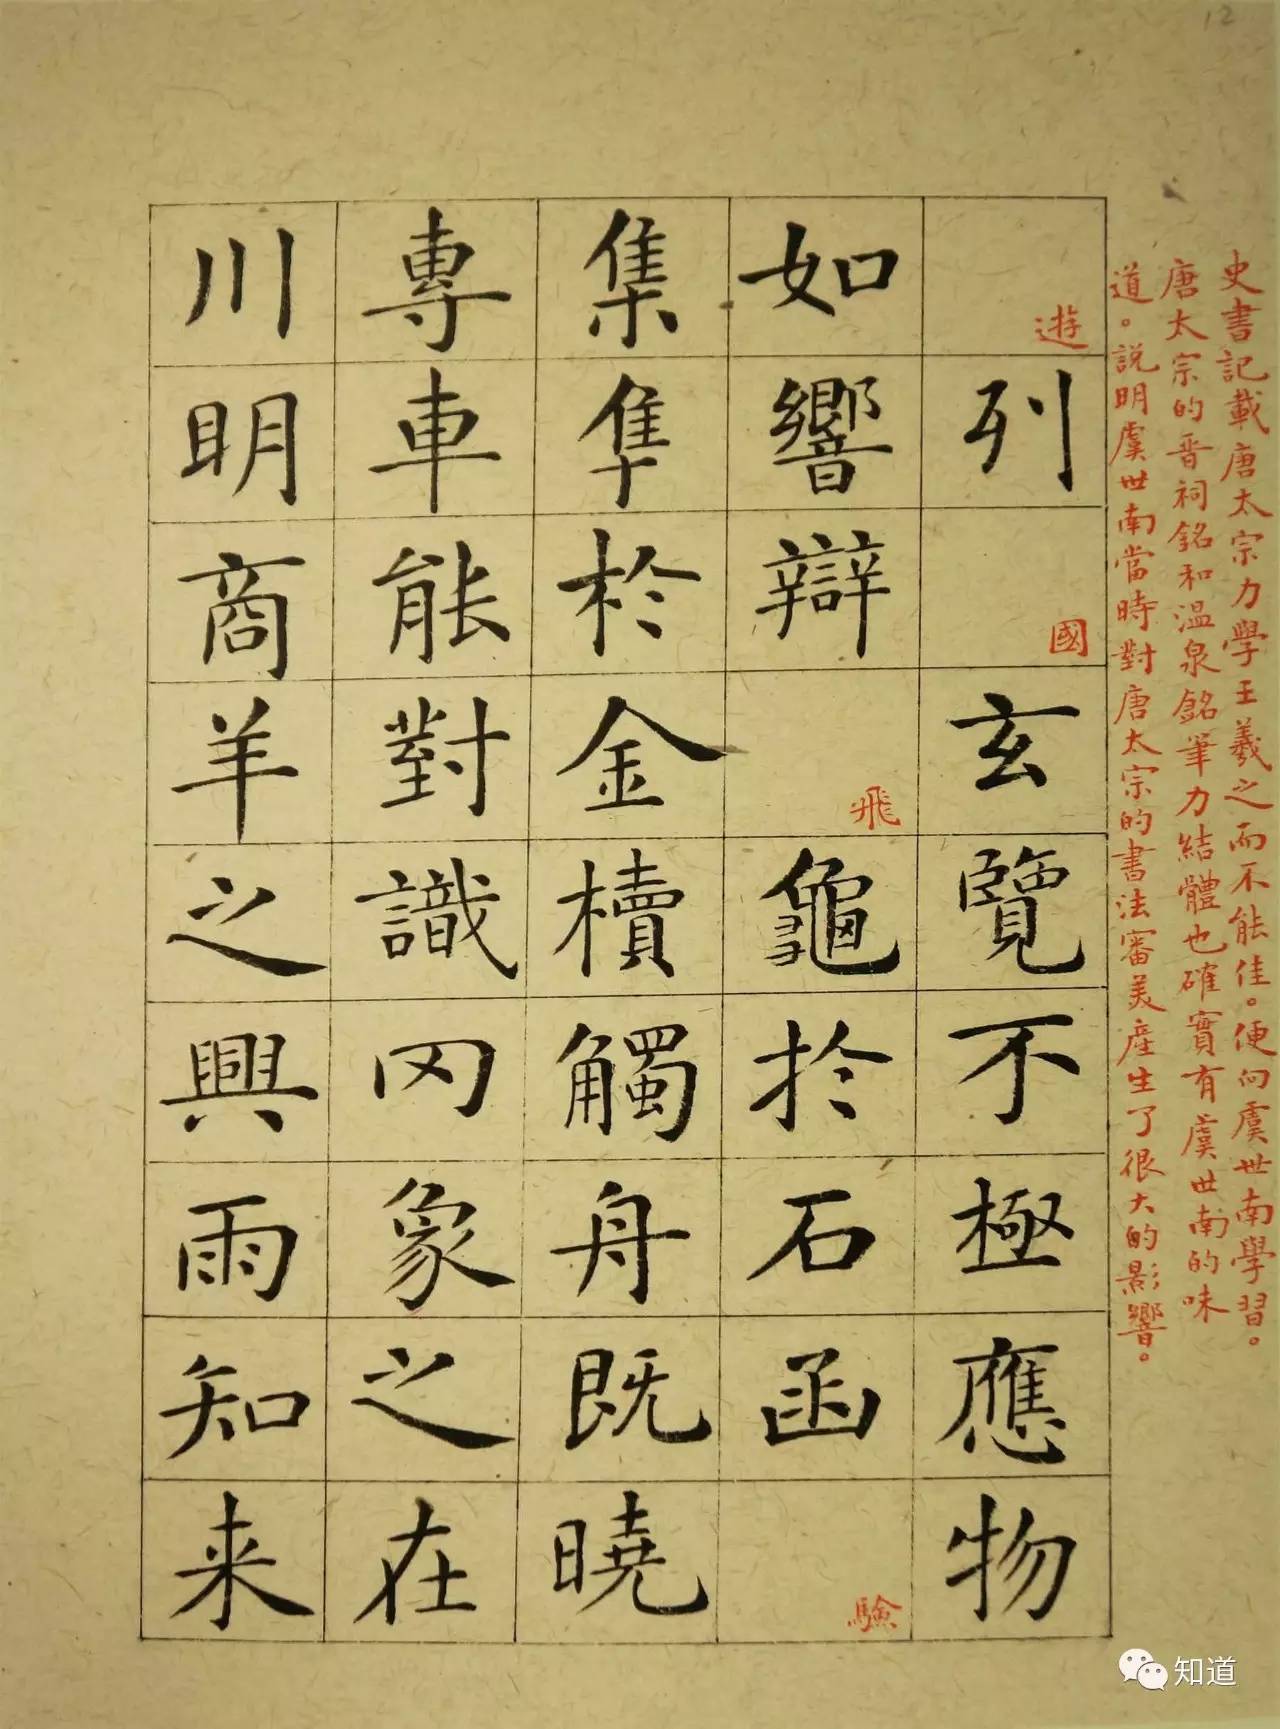 12
史書記載唐太宗力學王羲之而不能佳。便向虞世南學習。
唐太宗的晋祠銘和温泉銘筆力結體也確實有虞世南的味
道。説明虞世南當時對唐太宗的書法審美産生了很大的影響。
遊列國玄覽不極應物
如響辯飛龜於石函驗
集隼於金櫝觸舟既曉
專車能對識罔象之在
川明商羊之興雨知来
知道